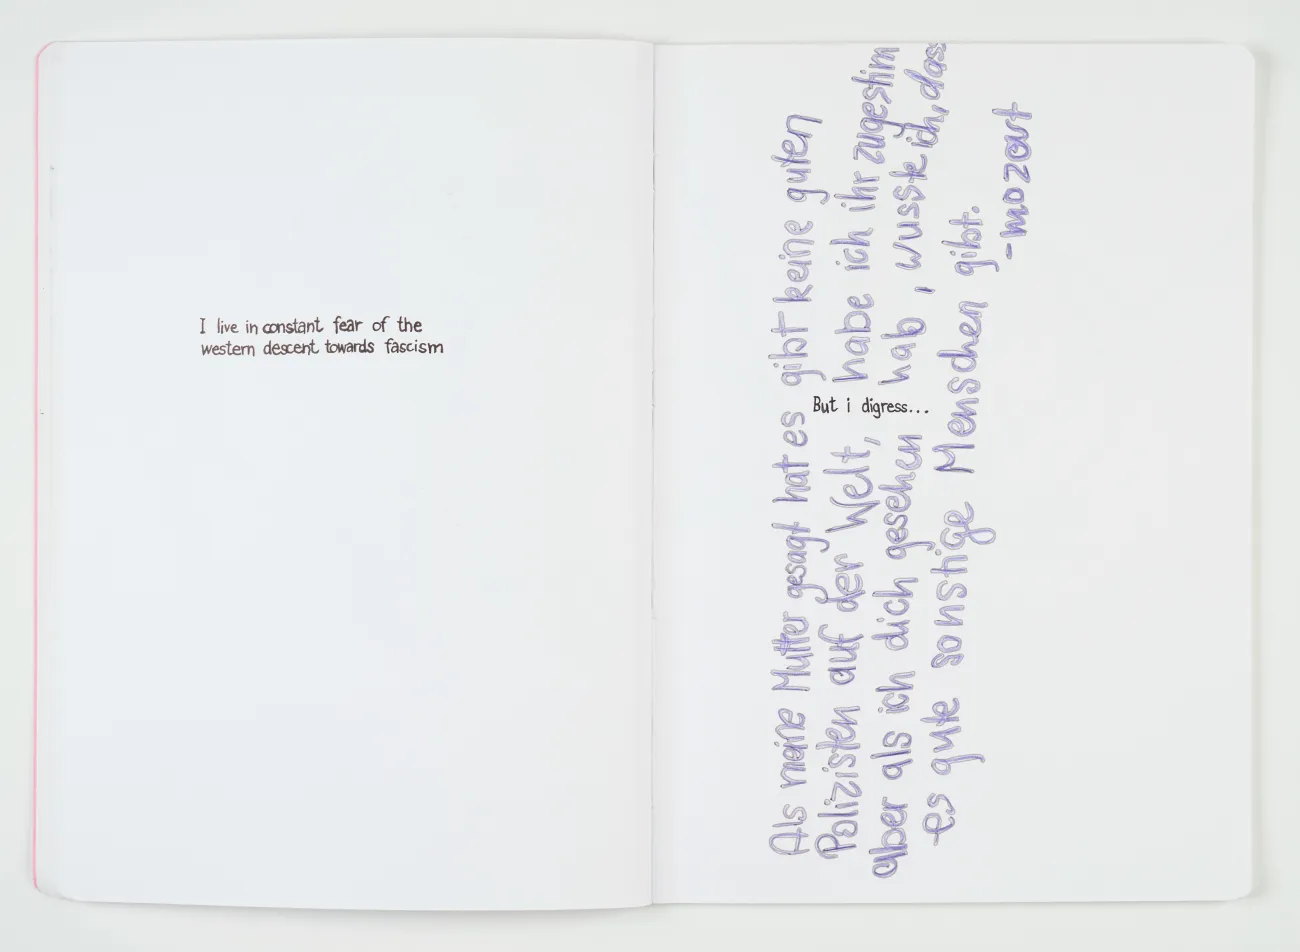 I live in constant fear of the
western descent towards fascism
But i digress...
Als meine Mutter gesagt hat es gibt keine guten
Polizisten auf der Welt, habe ich ihr zugestim
aber als ich dich gesehen hab, wusste ich, dass
es gute sonstige Menschen gibt.
-mozart